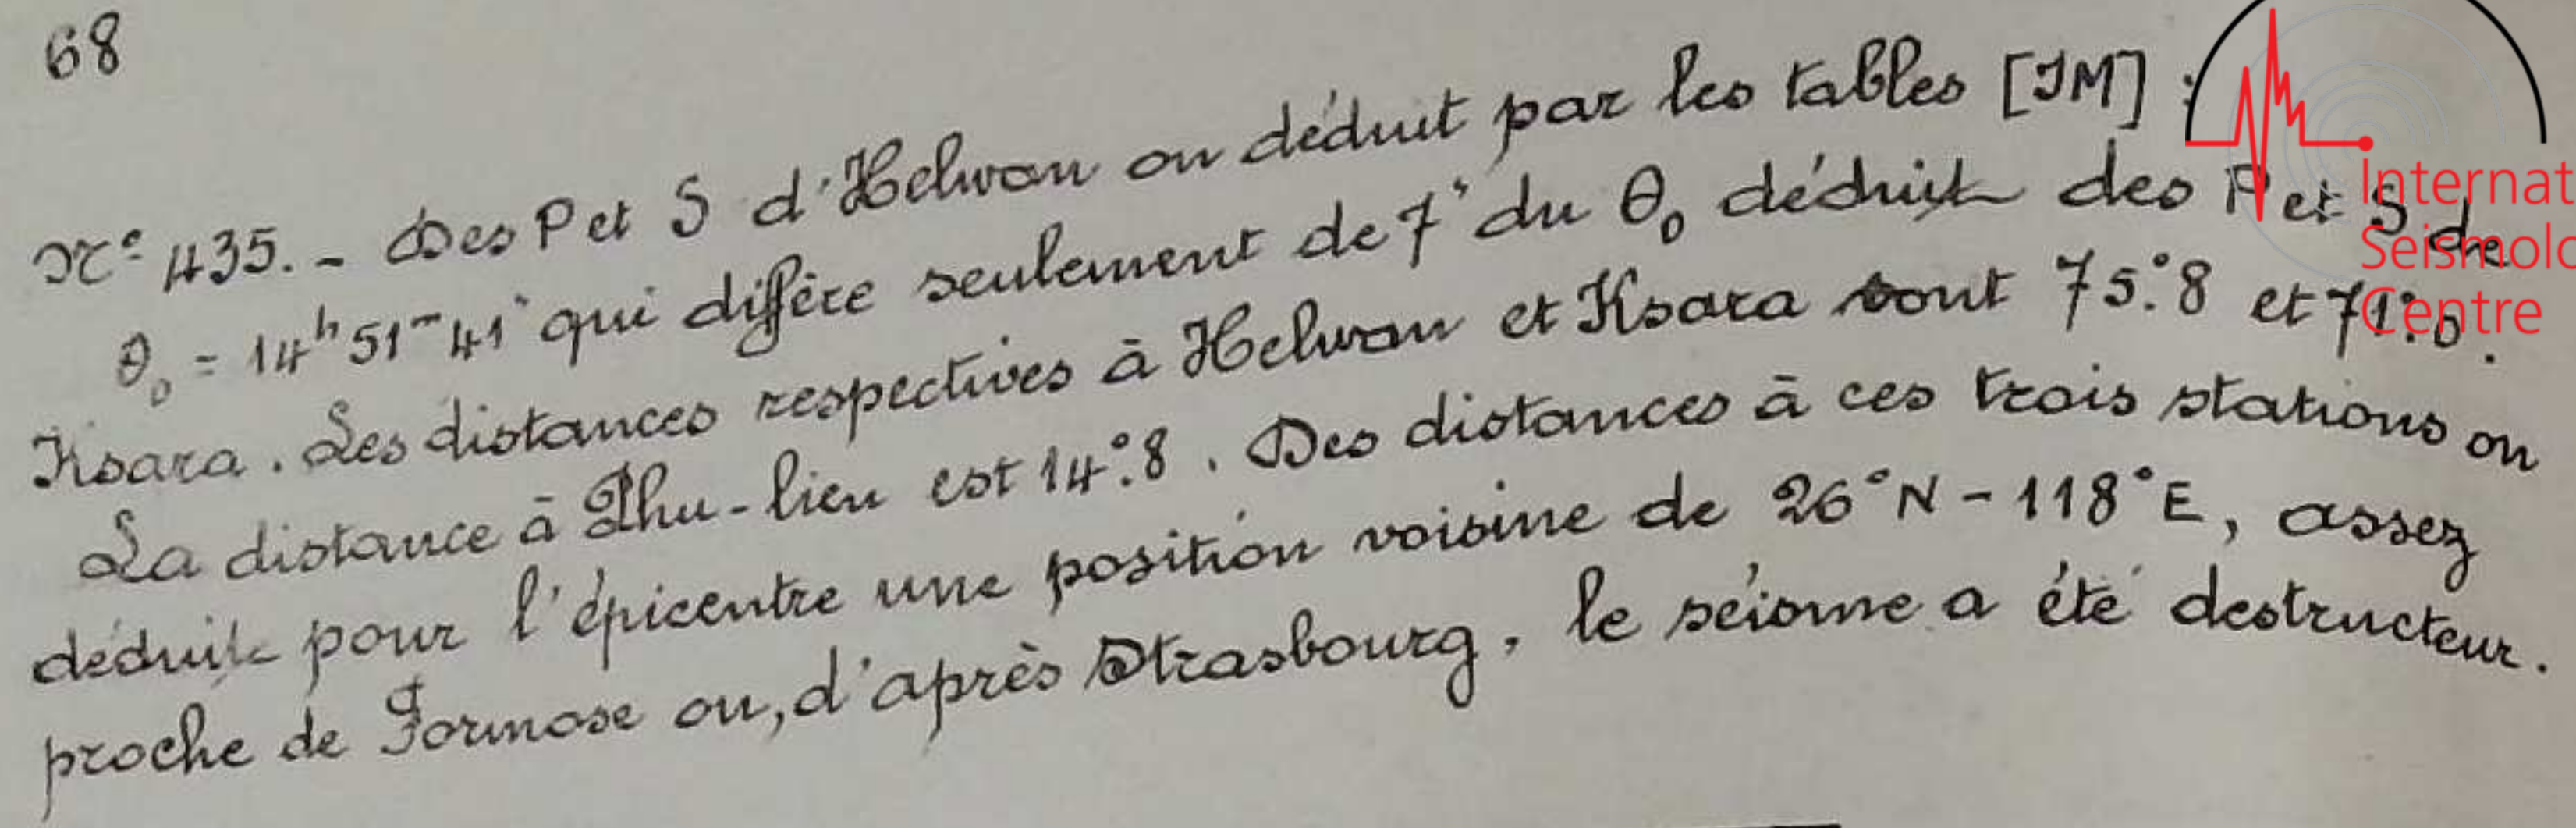 68
N° 435. - Des P et S d'Helwan on déduit par les tables [JM] :
θ₀ = 14ʰ 51ᵐ 41ˢ qui diffère seulement de 7ˢ du θ₀ déduit des P et S de
Ksara. Les distances respectives à Helwan et Ksara sont 75°.8 et 71°.0.
La distance à Phu-lien est 14°.8. Des distances à ces trois stations on
déduit pour l'épicentre une position voisine de 26°N - 118°E, assez
proche de Formose ou, d'après Strasbourg, le séisme a été destructeur.
Internat
Seismolo
Centre